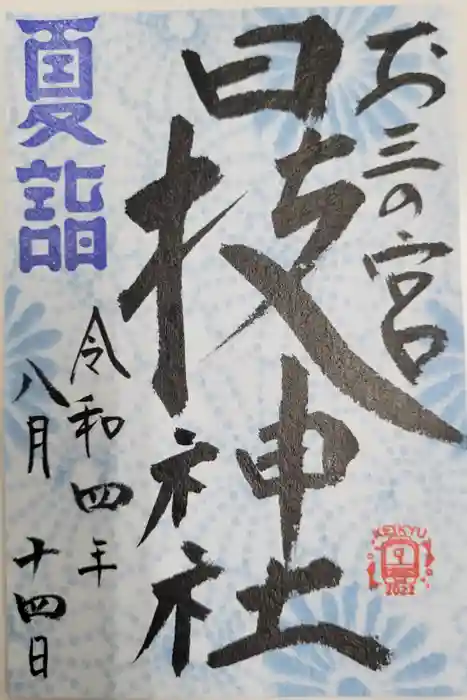 お三の宮
日枝神社
夏詣
令和四年
八月十四日
KEIKYU
2022